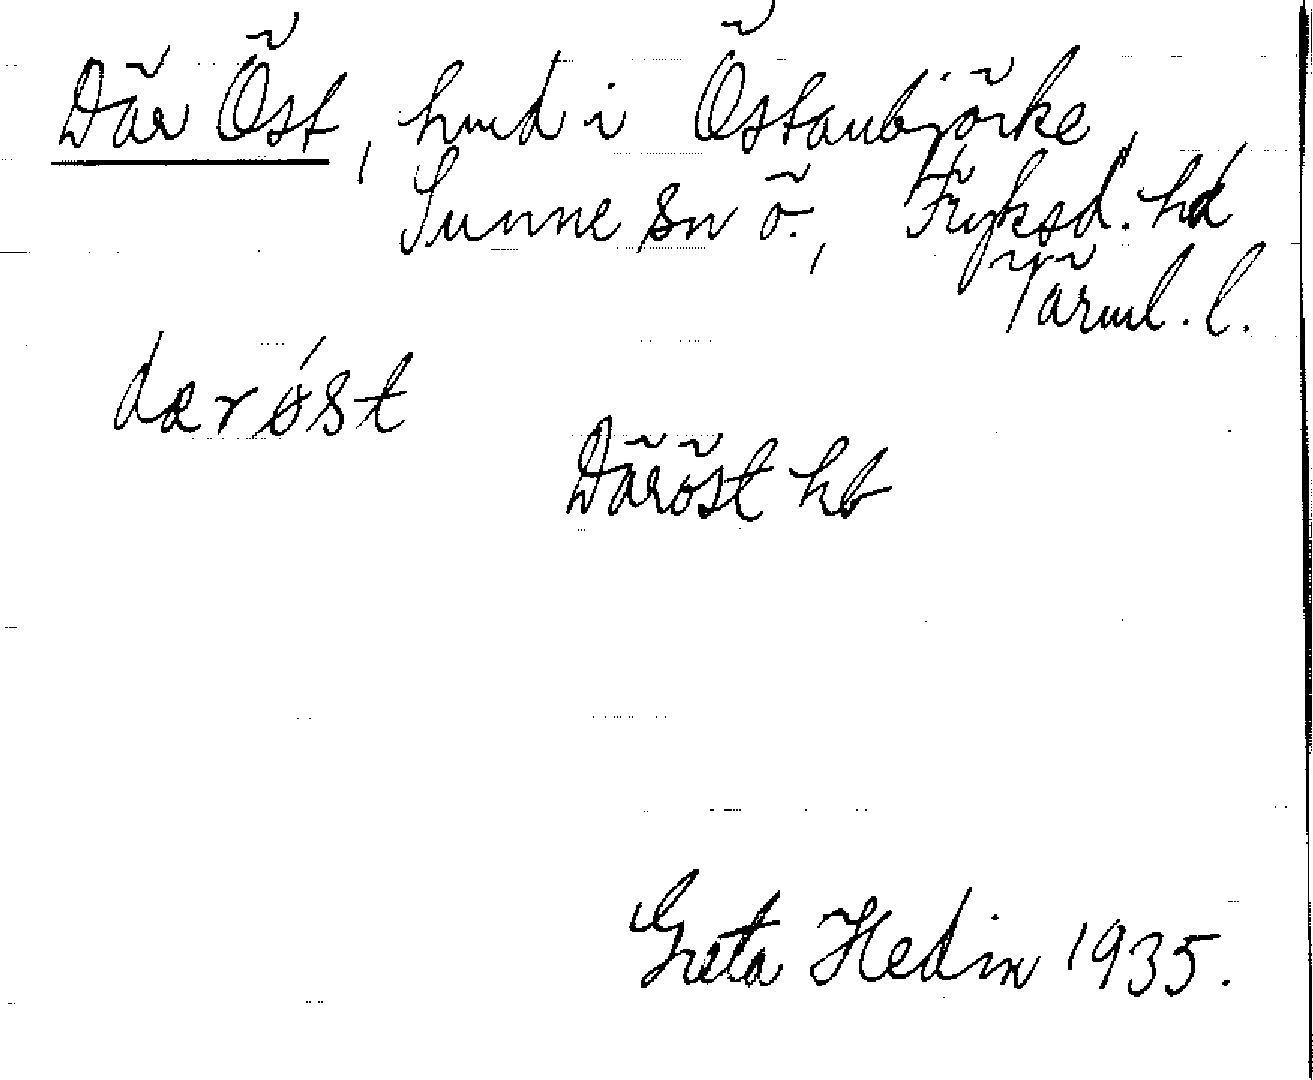 Där Öst, hmd i Östanbjörke,
Sunne sn ö., Fryksd. hd
Värml. l.
dærøst
Däröst hb
Greta Hedin 1935.